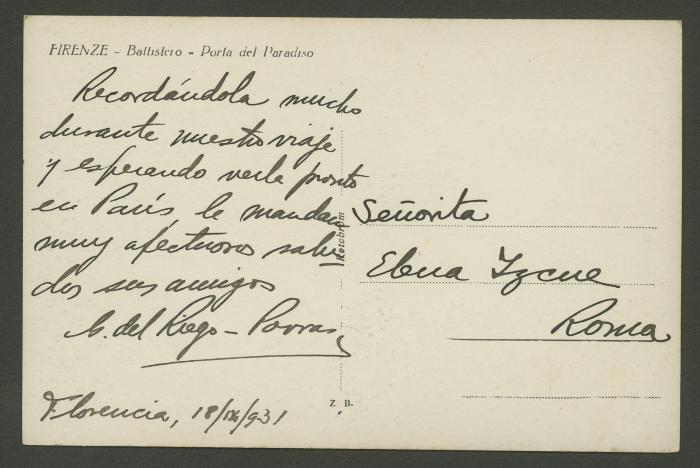 FIRENZE - Battistero - Porta del Paradiso
Recordándola mucho
durante nuestro viaje
y esperando verla pronto
en París, le mandan
muy afectuosos salu-
dos sus amigos
G. del Riego - Porras
Florencia, 18/IX/931
Señorita
Elena Izcue
Roma
Z. B.